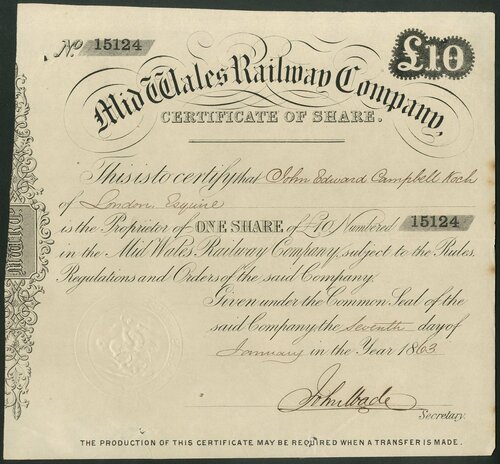 No. 15124
£10
Mid Wales Railway Company,
CERTIFICATE OF SHARE.
This is to certify that John Edward Campbell Koch
of London, Esquire
is the Proprietor of ONE SHARE of £10 Numbered 15124
in the Mid Wales Railway Company, subject to the Rules,
Regulations and Orders of the said Company.
Given under the Common Seal of the
said Company, the Seventh day of
January in the Year 1863
John Wade
Secretary.
THE PRODUCTION OF THIS CERTIFICATE MAY BE REQUIRED WHEN A TRANSFER IS MADE.